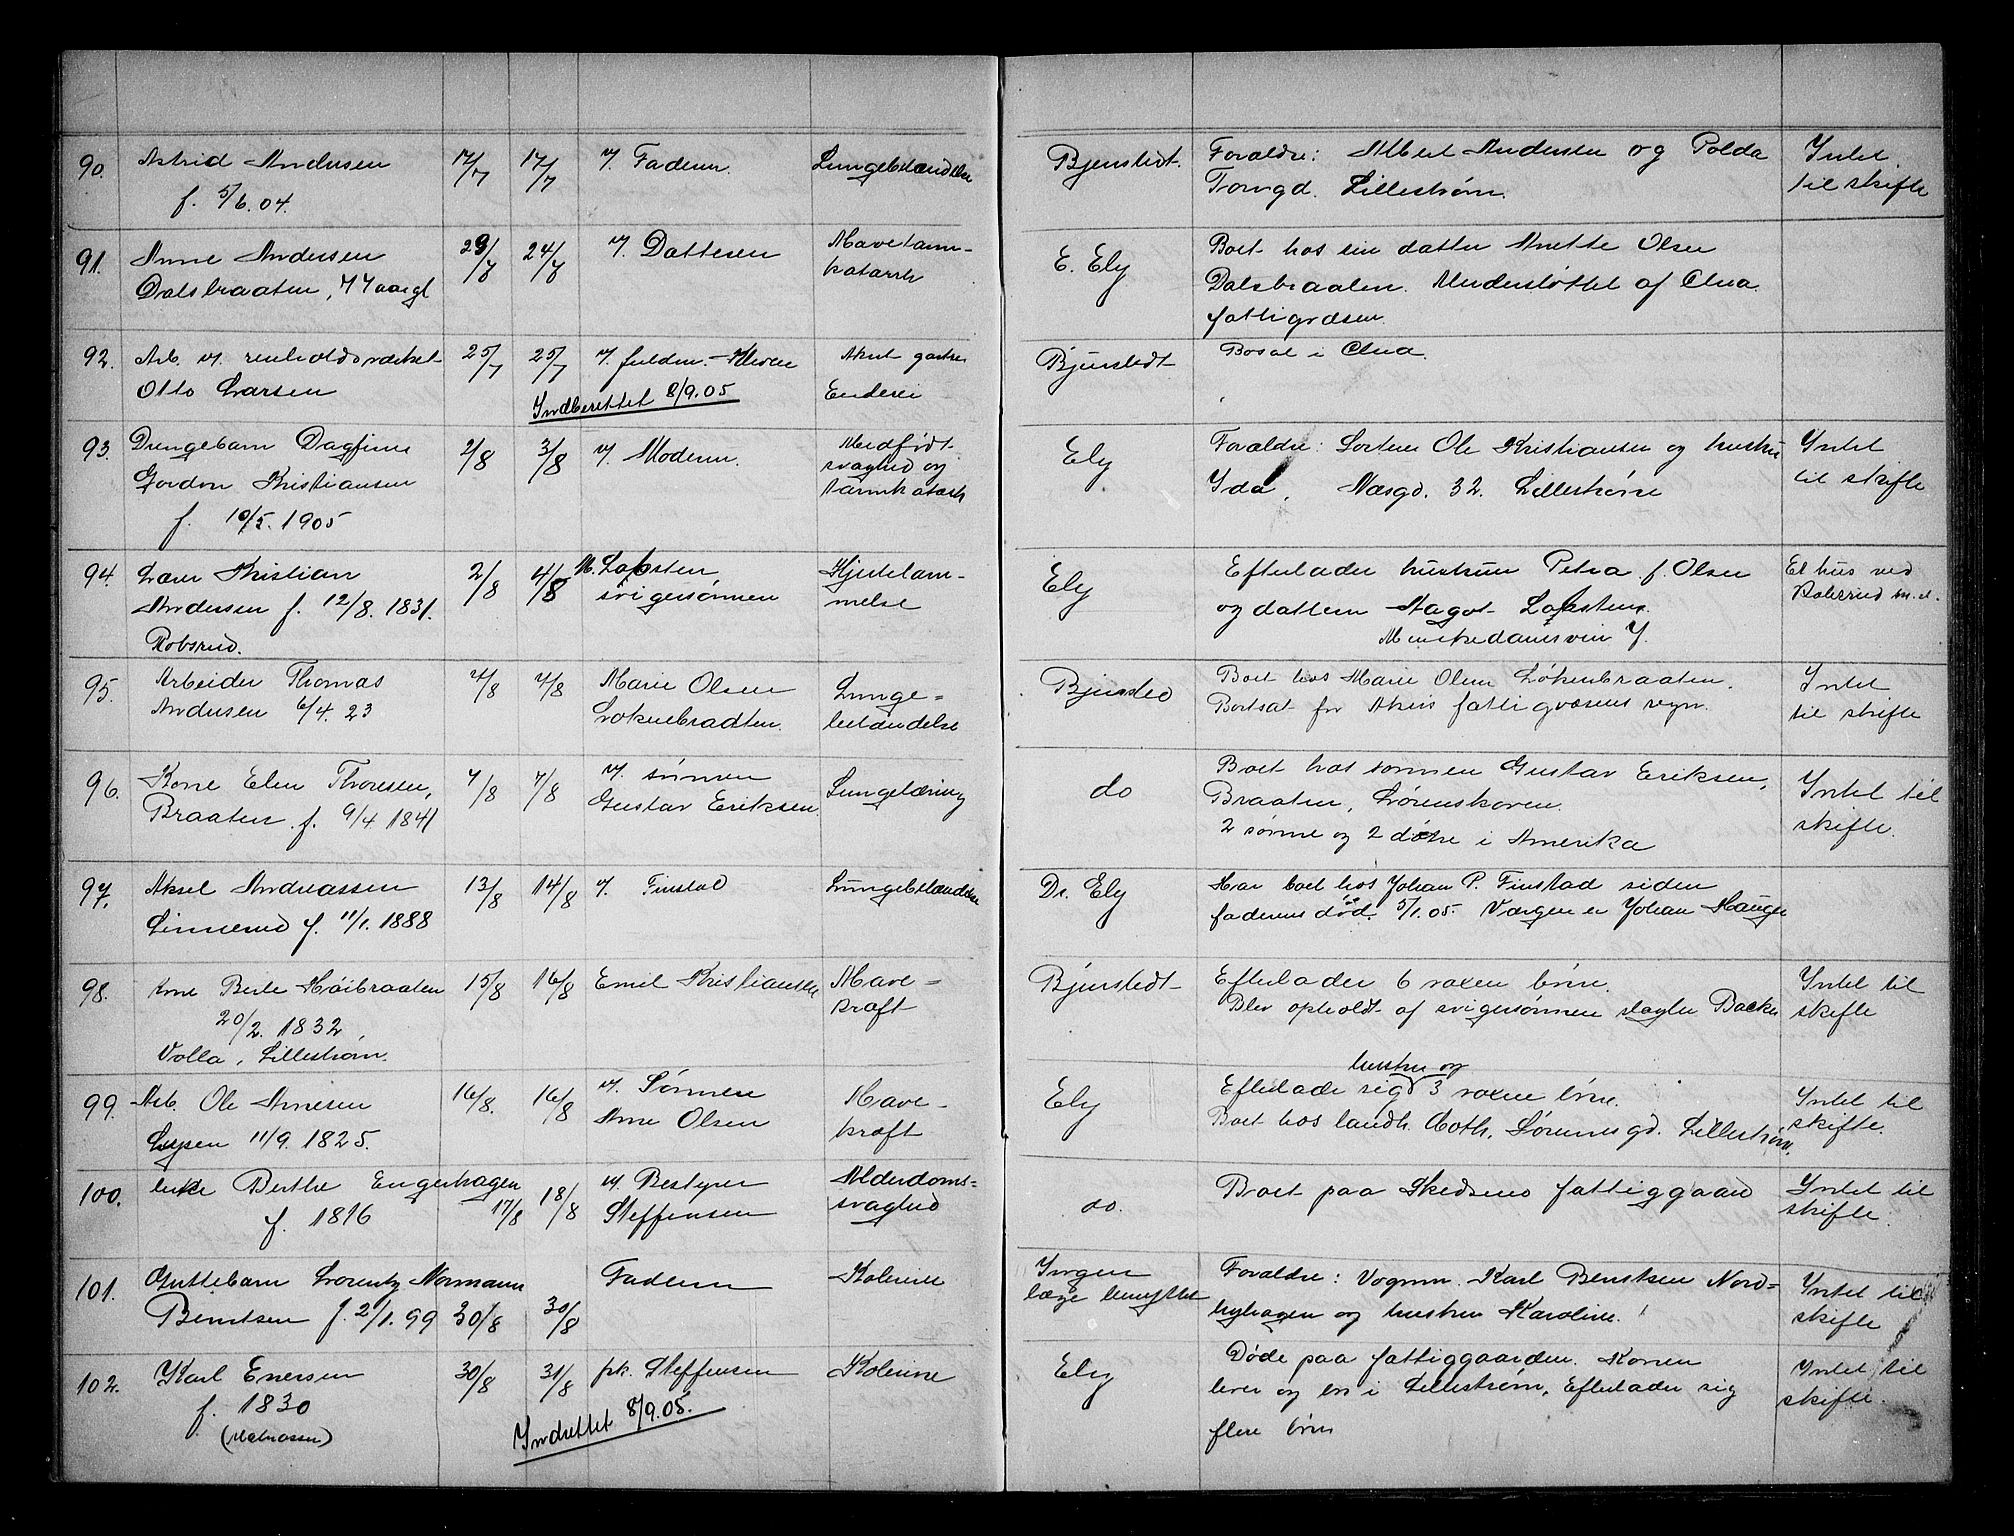 90. Astrid Andersen 17/7 17/7 v/ Faderen. Lungebetændelse Bjenstedt. Foraldre: Albert Andersen og Polda Intet
f. 5/6.04. Torvgd. Lillestrøm. til skifte
91. Anne Andersen 23/7 24/7 v/ Datteren Mavetarm- E. Ely Boet hos sin datter Anette Olsen
Dalsbraaten, 77 aargl katarrh Dalsbraaten. Understøttet af
fattigvæsen
92. Arb. v. renholdsværket 25/7 25/7 v/ fuldm. Akut gastro Bjurstedt Bosat i
Otto Larsen Indberettet 8/9.05 Enderei
93. Drengebarn Dagfinn 2/8 3/8 v/ Moderen. Medfødt Ely Foraldre: Ole Kristiansen og hustru Intet
Gordon Kristiansen svaghed og Ida. Næsgd. 32. Lillestrøm til skifte
f. 10/5.1905 tarmkatarh
94. Lars Kristian 2/8 4/8 M. Lofsten Hjertelam- Ely Efterlader hustruen Petra f. Olsen Et hus ved
Andersen f. 12/8.1831. svigersønnen melse og datteren Aagot Lofsten. Robsrud m.d.
Robsrud. Munkedamsvein 7.
95. Arbeider Thomas 4/8 7/8 Marie Olsen Lunge- Bjursted Boet hos Marie Olsen Løkenbraaten. Intet
Andersen 6/4.23 Løkenbraaten. betændelse Bortsat for Akers fattigvæsens regn. til skifte
96. Kone Elen Thoresen, 7/8 7/8 v/ sønnen Lungetæring do Boet hos sønnen Gustav Eriksen, Intet til
Braaten f. 9/4 1841 Gustav Eriksen Braaten, Lørenskoven. skifte.
2 sønne og 2 døtre i Amerika
97. Aksel Andreassen 13/8 14/8 v/ Finstad Lungebetændelse Dr. Ely Har boet hos Johan P. Finstad siden
Linnerud f. 11/1.1888 faderens død 5/1.05. Værgen er Johan Hauger
98. Berte Høibraaten 15/8 16/8 Emil Kristiansen Mave- Bjurstedt Efterlader 6 voxen børn. Intet til
20/2.1832 kræft Blev opholdt af svigersønnen slagter Backe skifte
Volla, Lillestrøm.
99. Arb. Ole Arnesen 16/8. 16/8 v/ Sønnen Mave- Ely Efterlade sig hustru og 3 voxne børn. Intet til
11/9.1825. Arne Olsen kræft Boet hos landh. Both, Sørumsgd. Lillestrøm. skifte.
100. Enke Berthe Engerhagen 17/8 18/8 v/ Bestyrer Alderdoms- do. Boet paa Skedsmo fattiggaard Intet til
f. 1816 Steffensen svaghed skifte.
101. Guttebarn Lorentz Normann Faderen Kolerine Ingen Foraldre: Vognm. Karl Berntsen Nord- Intet til
Berntsen f. 2/1.99 30/8 30/8 læge benyttet byhagen og hustru Karoline. skifte
102. Karl Enersen 30/8 31/8 pk. Steffensen Kolerine Ely Døde paa fattiggaarden. Konen Intet til
f. 1830 Indrettet 8/9.05. lever og bor i Lillestrøm. Efterlader sig skifte.
flere børn